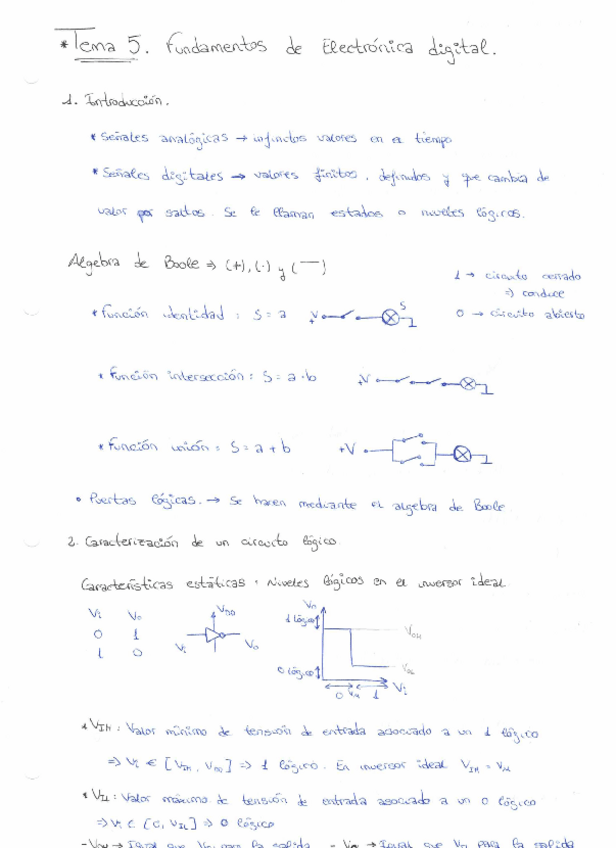 * Tema 5. Fundamentos de Electrónica digital.
1. Introducción.
* Señales analógicas → infinitos valores en el tiempo
* Señales digitales → valores finitos, definidos y que cambia de
valor por saltos. Se le llaman estados o niveles lógicos.
Algebra de Boole ⇒ (+), (·) y (‾)
1 → circuito cerrado
⇒ conduce
* Función identidad : S = a +V S
0 → circuito abierto
* Función intersección : S = a · b +V
* Función unión : S = a + b +V
• Puertas lógicas. → Se hacen mediante el algebra de Boole
2. Caracterización de un circuito lógico.
Características estáticas · Niveles lógicos en el inversor ideal
Vi Vo
0 1
1 0
VDD
Vi Vo
1 lógico
VOH
0 lógico
VOL
0 1 Vi
* VIH : Valor mínimo de tensión de entrada asociado a un 1 lógico
⇒ Vi ∈ [VIH, VDD] ⇒ 1 lógico. En inversor ideal VIH = VM
* VIL : Valor máximo de tensión de entrada asociado a un 0 lógico
⇒ Vi ∈ [0, VIL] ⇒ 0 lógico